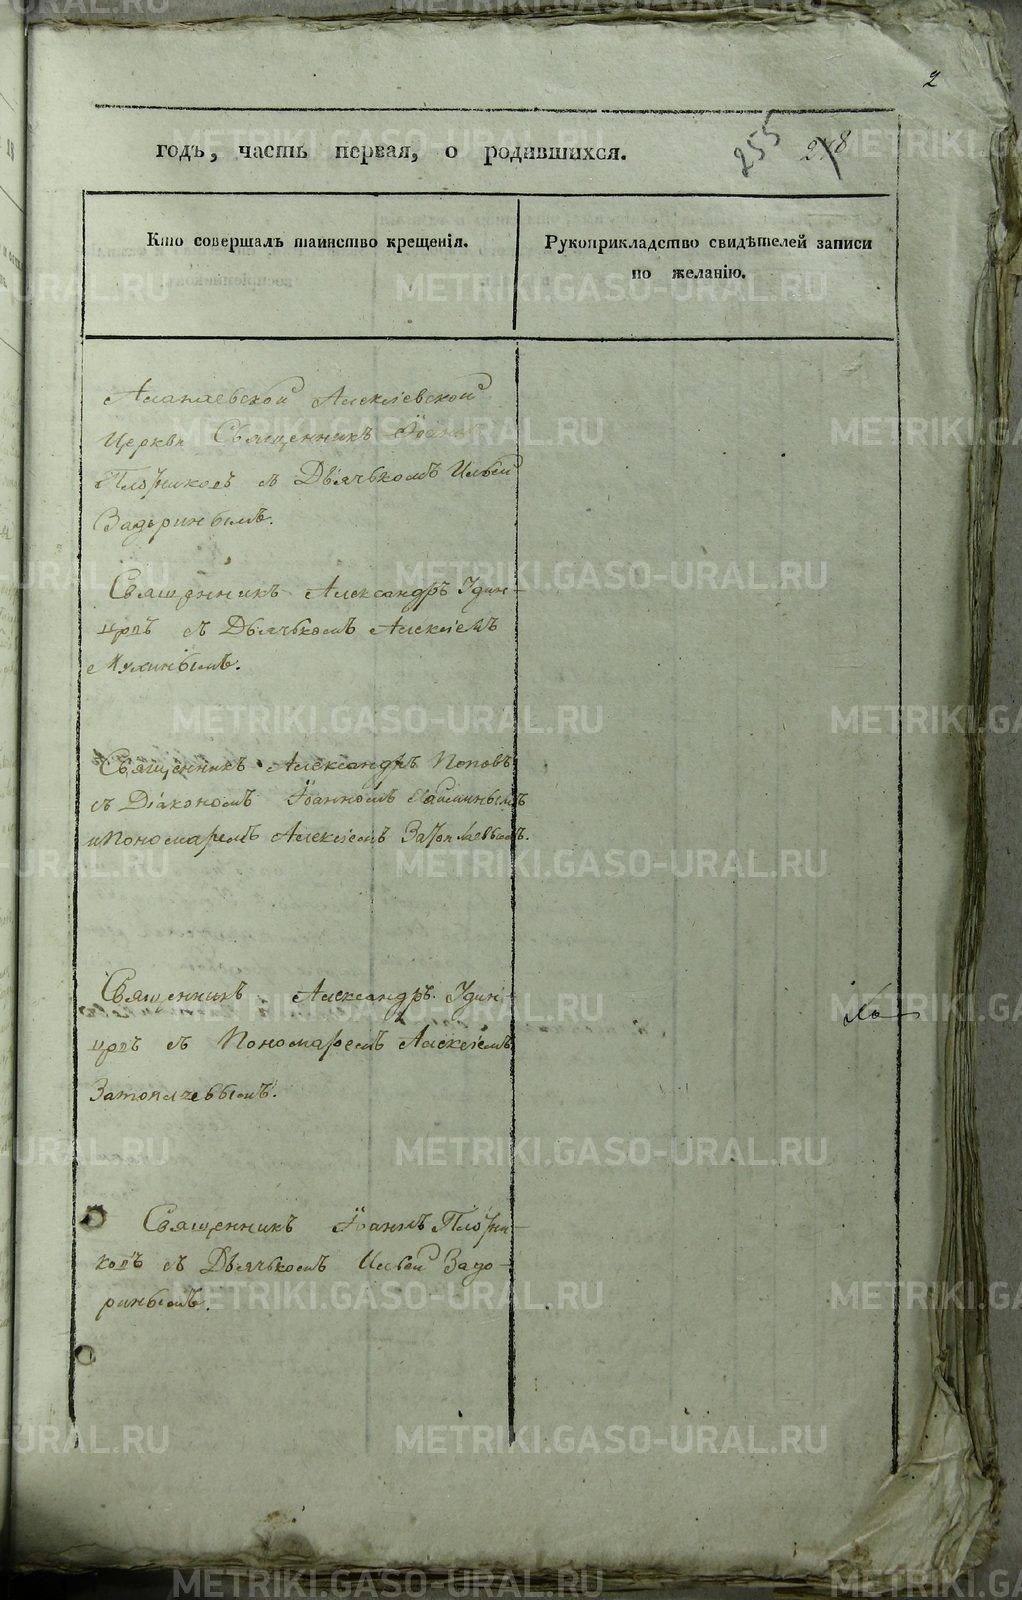 2
годъ, часть первая, о родившихся.
255 248
Кто совершалъ таинство крещенія.
Рукоприкладство свидѣтелей записи
по желанію.
Алапаевской Алексіевской
Церкви Священникъ Іоаннъ
Плотниковъ съ Дьячькомъ Ильей
Задоринымъ.
Священникъ Александръ Удин-
цовъ съ Дьячькомъ Алексіемъ
Мухинымъ.
Священникъ Александръ Поповъ
съ Діакономъ Іоанномъ
и Пономаремъ Алексіемъ
Священникъ Александръ Удин-
цовъ съ Пономаремъ Алексіемъ
Затопляевымъ.
Священникъ Іоаннъ Плотни-
ковъ съ Дьячькомъ Ильей Задо-
ринымъ.
METRIKI.GASO-URAL.RU